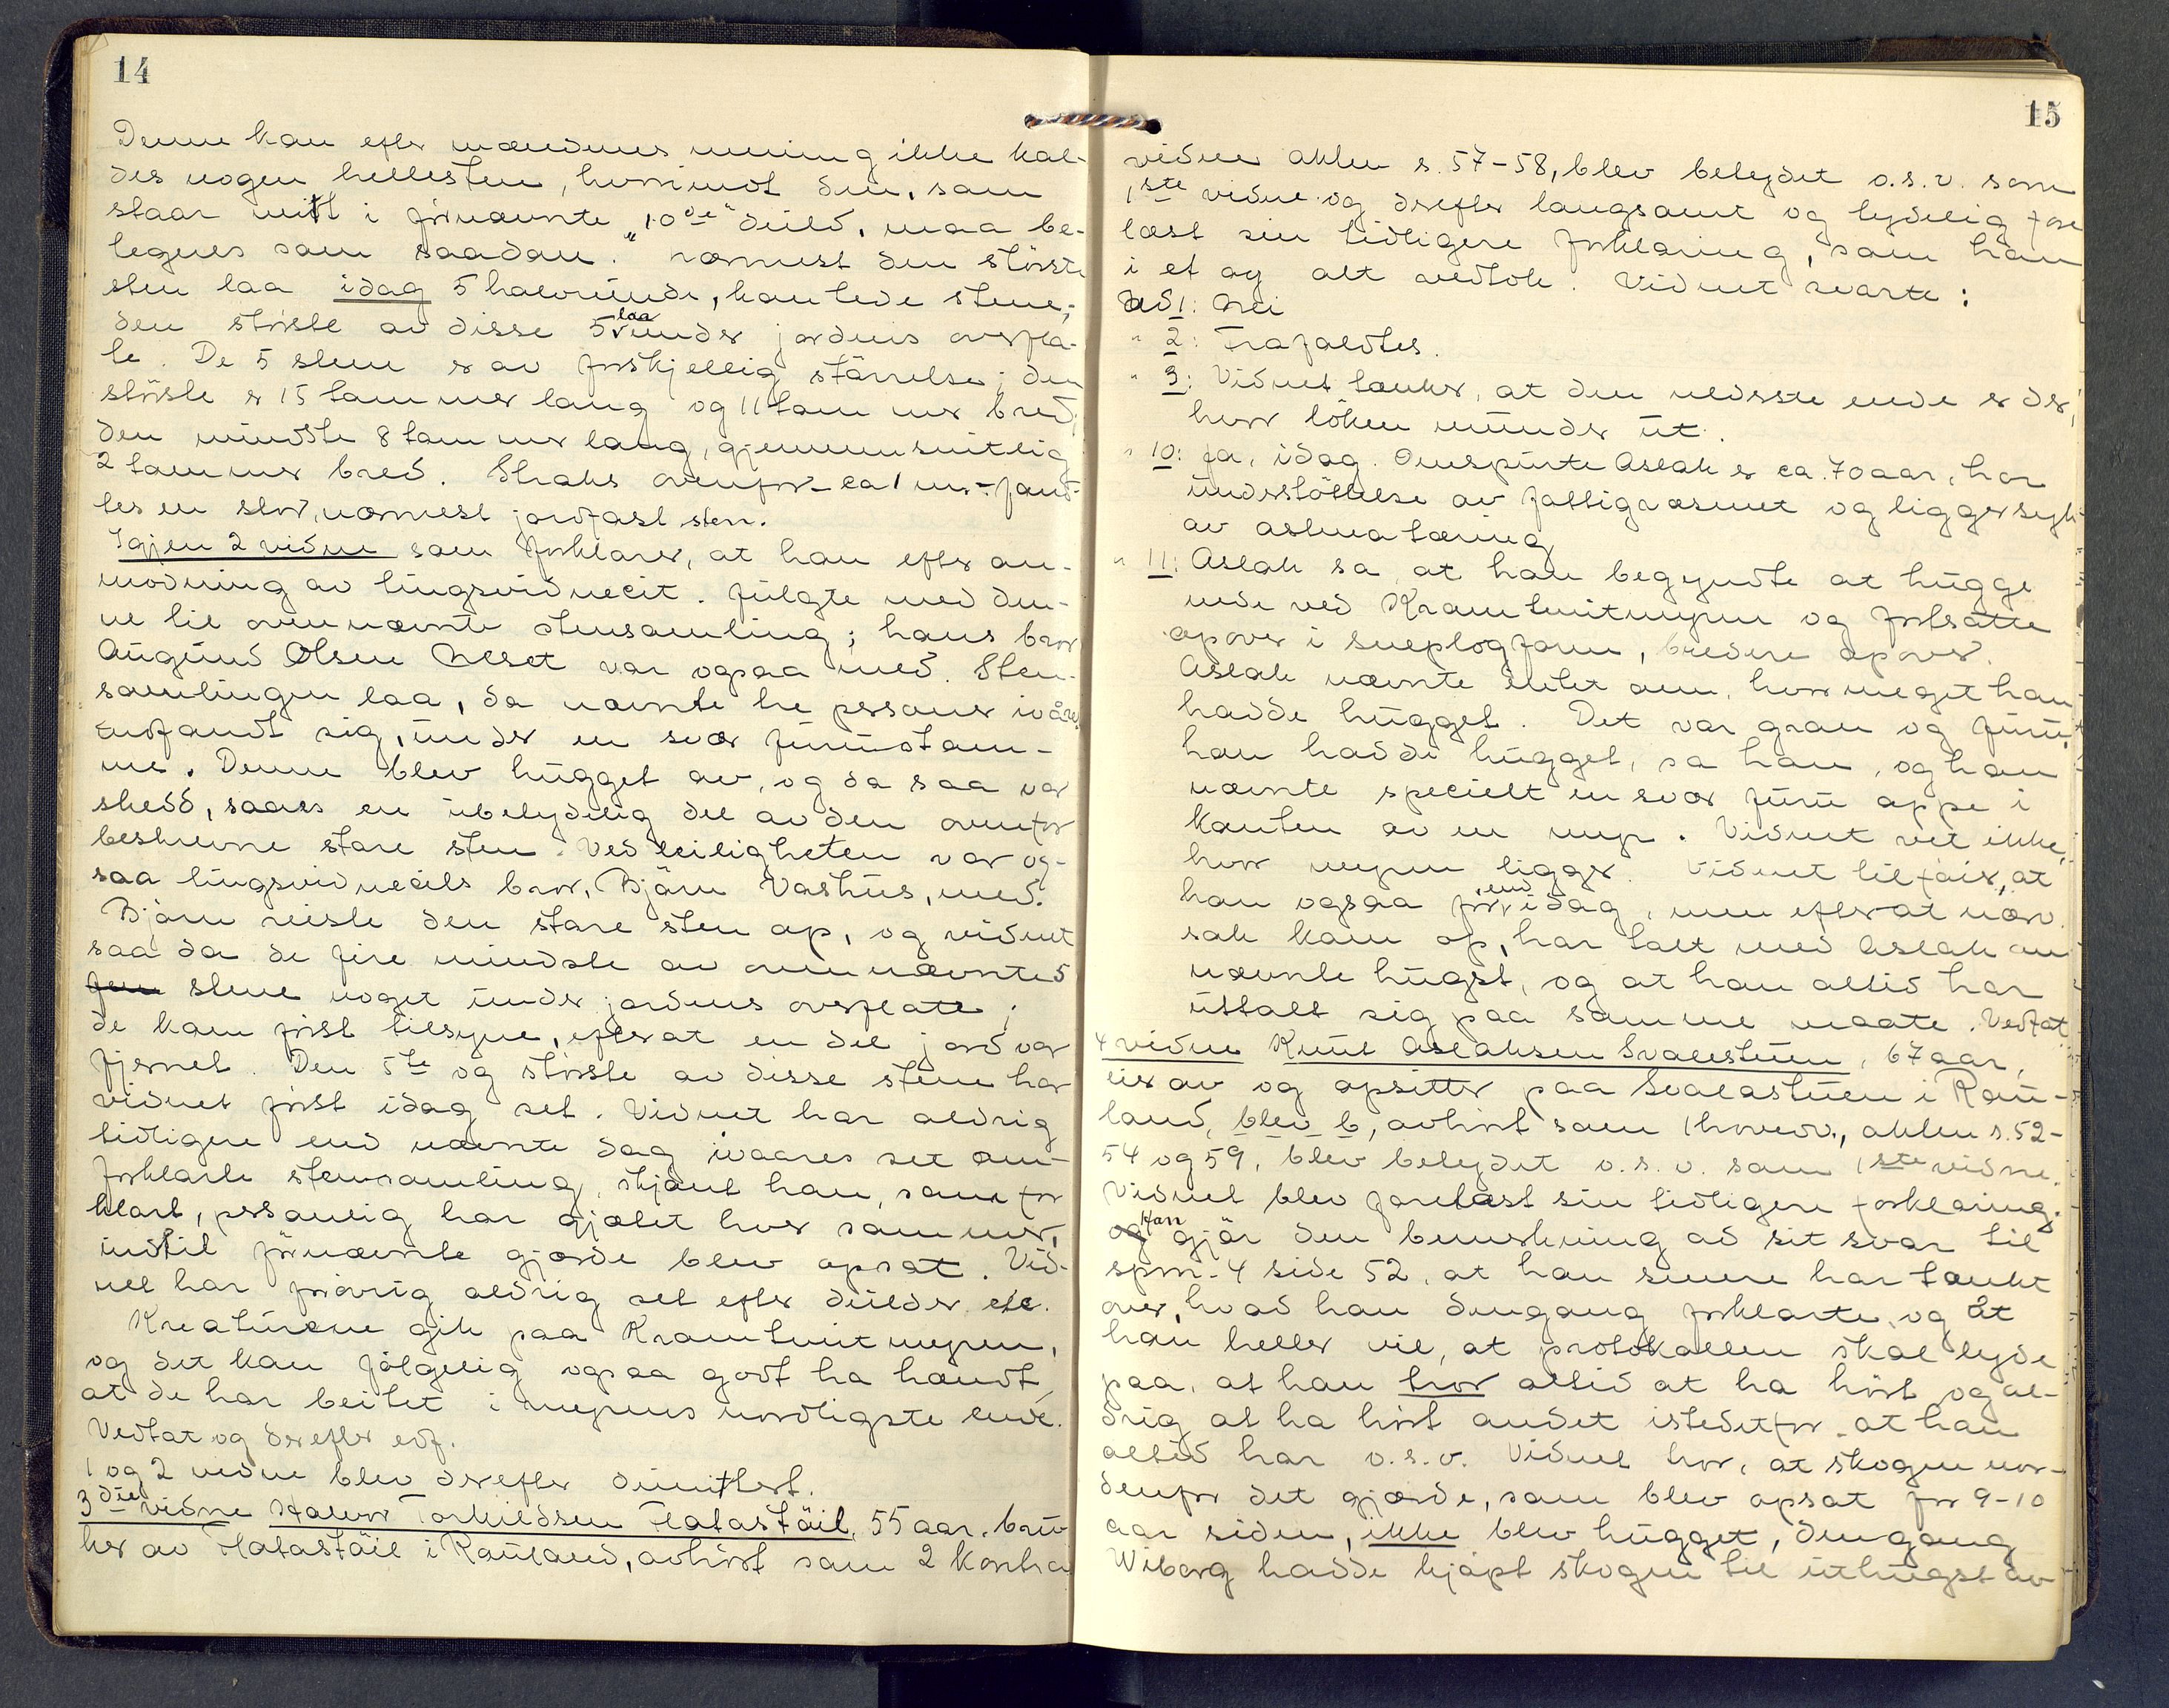 14
Denne kan efter mændenes mening ikke kal-
des nogen hellesten, hvorimot den, som
staar mitt i førnævnte "10de" deild, maa be-
tegnes som saadan. Nærmest den største
sten laa idag 5 halvrunde, kantede stene;
den største av disse 5 laa under jordens overfla-
te. De 5 stene er av forskjellig størrelse; den
største er 15 tommer lang og 11 tommer bred,
den mindste 8 tommer lang, gjennemsnitlig
2 tommer bred. Straks ovenfor - ca 1 m. - fand-
tes en stor, nærmest jordfast sten.
Igjen 2 vidne som forklarer, at han efter an-
modning av tingsvidnecit. fulgte med den-
ne til ovennævnte stensamling; hans bror
Augund Olsen Neset var ogsaa med. Sten-
samlingen laa, da nævnte tre personer ivåres
indfandt sig, under en svær furustam-
me. Denne blev hugget av, og da saa var
skedd, saaes en ubetydelig del av den ovenfor
beskrevne store sten. Ved leiligheten var og-
saa tingsvidnecits bror, Bjørn Vashus, med.
Bjørn reiste den store sten op, og vidnet
saa da de fire mindste av ovennævnte 5
stene noget under jordens overflate;
de kom først tilsyne, efterat en del jord var
fjernet. Den 5te og største av disse stene har
vidnet først idag set. Vidnet har aldrig
tidligere end nævnte dag ivaares set om-
forklarte stensamling, skjønt han, som for
klart, personlig har gjætet hver sommer,
indtil førnævnte gjærde blev opsat. Vid-
net har forøvrig aldrig set efter deilder etc.
Kreaturene gik paa Kromtveitmyren,
og det kan følgelig ogsaa godt ha hændt,
at de har beitet i myrens nordligste ende.
Vedtat og derefter edf.
1 og 2 vidne blev derefter dimittert.
3die vidne Halvor Torkildsen Flatastøil, 55 aar, bru-
ker av Flatastøil i Rauland, avhørt som 2 kontra
15
vidne akten s. 57-58, blev betydet o.s.v. som
1ste vidne og derefter langsomt og tydelig fore
læst sin tidligere forklaring, som han
i et og alt vedtok. Vidnet svarte:
Ad 1: Nei
" 2: Frafaldtes.
" 3: Vidnet tænker, at den nederste ende er der,
hvor løken munder ut.
" 10: Ja, idag. Omspurte Aslak er ca. 70 aar, har
understøttelse av fattigvæsenet og ligger syk
av astma tæring
" 11: Aslak sa, at han begyndte at hugge
nede ved Kromtveitmyren og fortsatte
opover i sneplogform, bredere opover.
Aslak nævnte intet om, hvor meget han
hadde hugget. Det var gran og furu,
han hadde hugget, sa han, og han
nævnte specielt en svær furu oppe i
kanten av en myr. Vidnet vet ikke,
hvor myren ligger. Vidnet tilføier, at
han ogsaa før end idag, men efterat nærv.
sak kom op, har talt med Aslak om
nævnte hugst, og at han altid har
uttalt sig paa samme maate. Vedtat
4 vidne Knut Aslaksen Svalestuen, 67 aar,
eier av og opsitter paa Svalastuen i Rau-
land, blev b, avhørt som 1 hovedv., akten s. 52-
54 og 59, blev betydet o.s.v. som 1ste vidne.
Vidnet blev forelæst sin tidligere forklaring.
Han gjør den bemerkning ad sit svar til
spm. 4 side 52, at han senere har tænkt
over, hvad han dengang forklarte, og at
han heller vil, at protokollen skal lyde
paa, at han tror altid at ha hørt og al-
drig at ha hørt andet istedetfor at han
altid har o.s.v. Vidnet tror, at skogen nor-
denfor det gjærde, som blev opsat for 9-10
aar siden, ikke blev hugget, dengang
Wiborg hadde kjøpt skogen til uthugst av